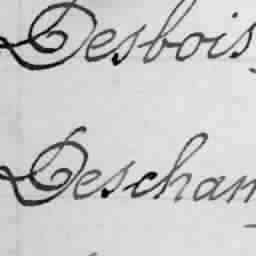 Desbois
Descham